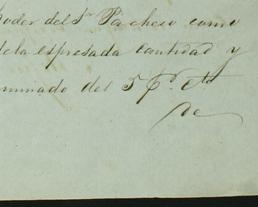 poder del Sr. Pacheco como
dela espresada cantidad y
minado del 5 P.º